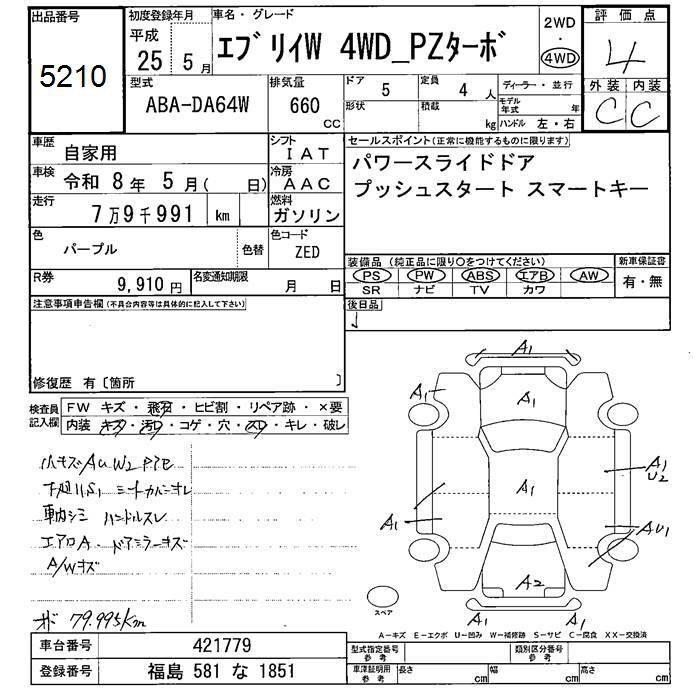 出品番号
5210
初度登録年月
平成
25 5 月
車名・グレード
エブリイW 4WD_PZターボ
2WD
・
4WD
評価点
4
外装 内装
C C
型式
ABA-DA64W
排気量
660
CC
ドア
5
定員
4 人
形状
積載
kg
ディーラー・並行
モデル年式 年
ハンドル 左・右
車歴
自家用
シフト
IAT
車検
令和 8 年 5 月( 日)
冷房
AAC
走行
7万9千991 km
燃料
ガソリン
色
パープル
色替
色コード
ZED
R券
9,910 円
名変通知期限
月 日
セールスポイント(正常に機能するものに限ります)
パワースライドドア
プッシュスタート スマートキー
装備品 (純正品に限り○をつけてください)
PS PW ABS エアB AW
SR ナビ TV カワ
新車保証書
有・無
後日品
注意事項申告欄(不具合内容等は具体的に記入して下さい)
修復歴 有〔箇所 〕
検査員
記入欄
FW キズ・飛石・ヒビ割・リペア跡・×要
内装 キズ・汚れ・コゲ・穴・スレ・キレ・破レ
小キズAU W2 P.P.E
下廻りS1 シートカバーヨレ
車内シミ ハンドルスレ
エアロA. ドアミラーキズ
A/Wキズ
79.995km
A1
A1
A1
A1
A1
U2
A1
AU1
A2
A1
A1
スペア
A-キズ E-エクボ U-凹み W-補修跡 S-サビ C-腐食 XX-交換済
車台番号
421779
登録番号
福島 581 な 1851
型式指定番号
参考
類別区分番号
参考
車庫証明用
参考
長さ cm
幅 cm
高さ cm